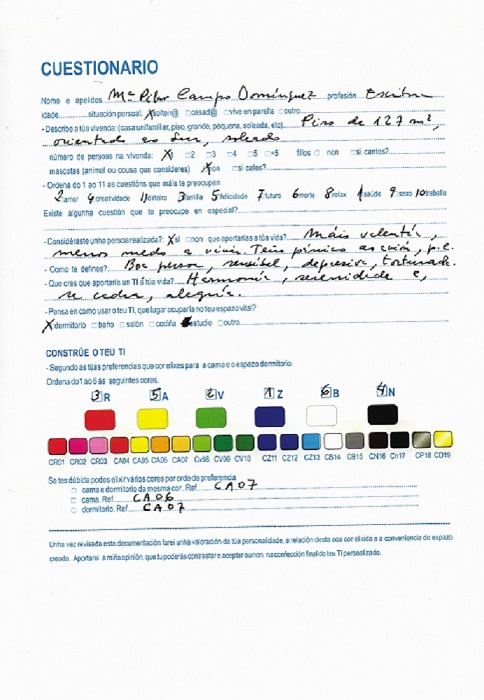 CUESTIONARIO
Nome e apelidos Mª Pilar Campo Domínguez profesión Escritora
idade situación persoal: X solteir@ □ casad@ □ vive en parella □ outro
- Describe a túa vivenda: (casa unifamiliar, piso, grande, pequena, soleada, etc) Piso de 127 m²,
orientado ao Sur, soleado
número de persoas na vivenda: X 1 □ 2 □ 3 □ 4 □ 5 □ +5 fillos □ non □ si cantos?
mascotas (animal ou cousa que consideres) X non □ si cales?
- Ordena do 1 ao 11 as cuestións que máis te preocupen
2 amor 4 creatividade 11 diñeiro 3 familia 5 felicidade 7 futuro 6 morte 8 relax 1 saúde 9 sexo 10 traballo
Existe algunha cuestión que te preocupe en especial?
- Consideráste unha persoa realizada?: X si □ non que aportarías a túa vida? Máis valentía,
menos medo a vivir. Teño pánico ao avión, p.e.
- Como te defines? Boa persoa, sensibel, depresiva, torturada.
- Que cres que aportaría un TI á túa vida? Harmonía, serenidade e,
se cadra, alegría.
- Pensa en como usar o teu TI, que lugar ocuparía no teu espazo vital?
X dormitorio □ baño □ salón □ cociña estudio □ outro
CONSTRÚE O TEU TI
- Segundo as túas preferencias que cor elixes para a cama e o espazo dormitorio.
Ordena do 1 ao 6 as seguintes cores.
3 R 5 A 2 V 1 Z 6 B 4 N
CR01 CR02 CR03 CA04 CA05 CA06 CA07 CV08 CV09 CV10 CZ11 CZ12 CZ13 CB14 CB15 CN16 CN17 CP18 CD19
Se tes dúbida podes elixir varios cores por orde de preferencia
□ cama e dormitorio da mesma cor. Ref. CA07
□ cama. Ref. CA06
□ dormitorio. Ref. CA07
Unha vez revisada esta documentación farei unha valoración da túa personalidade, a relación desta coa cor elixida e a conveniencia do espazo
creado. Aportarei a miña opinión, que tu poderás contrastar e aceptar ou non na confección final do teu TI personalizado.